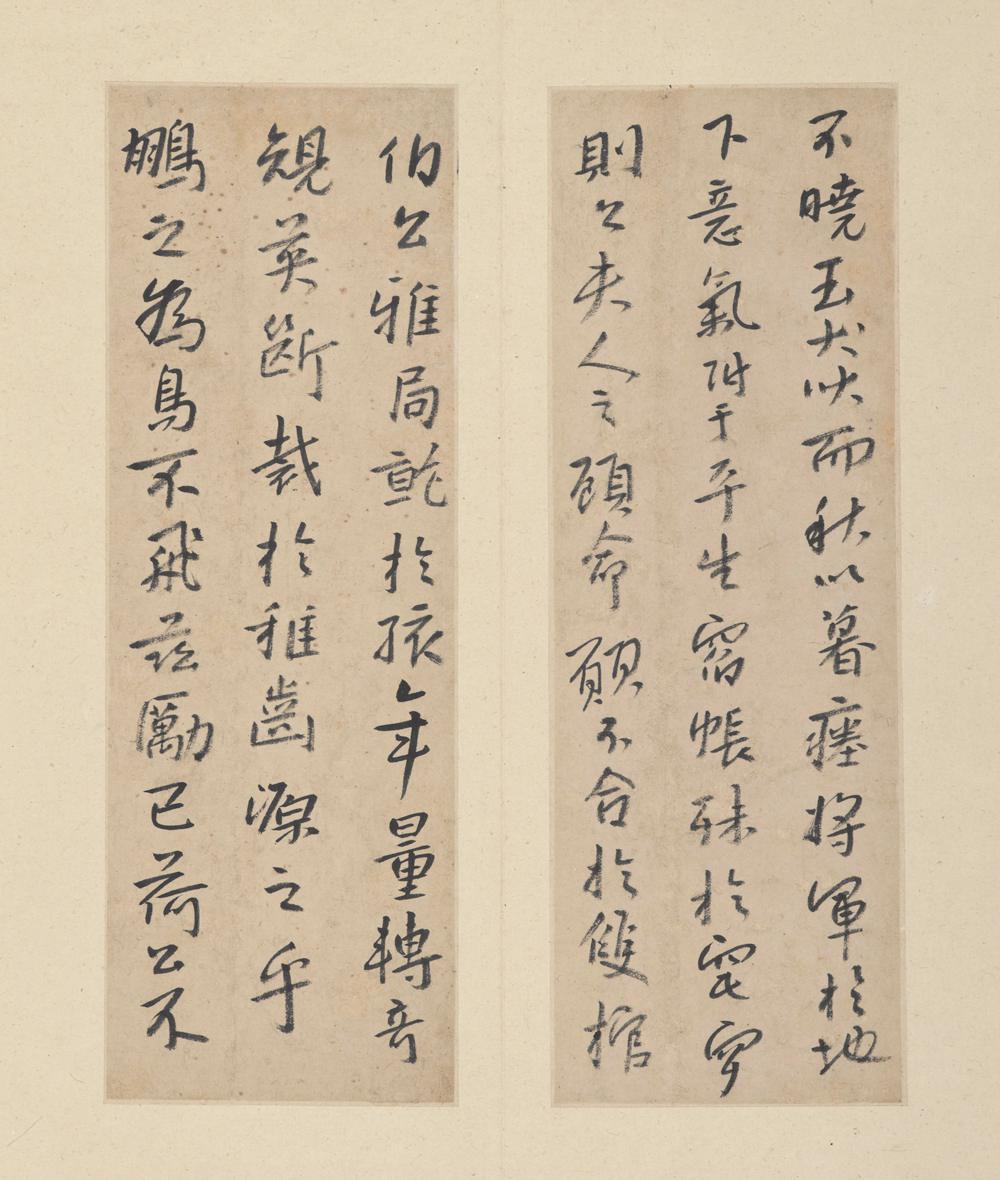 不曉玉犬吠而秋以暮瘞將軍於地
下意氣附于平生宿帳殊於窀穸
則公夫人之顧命願不合於雙棺
伯公雅局於孩年量轉奇
規英斷裁於稚齒源之乎
鵬之為鳥不飛茲勵已荷公不